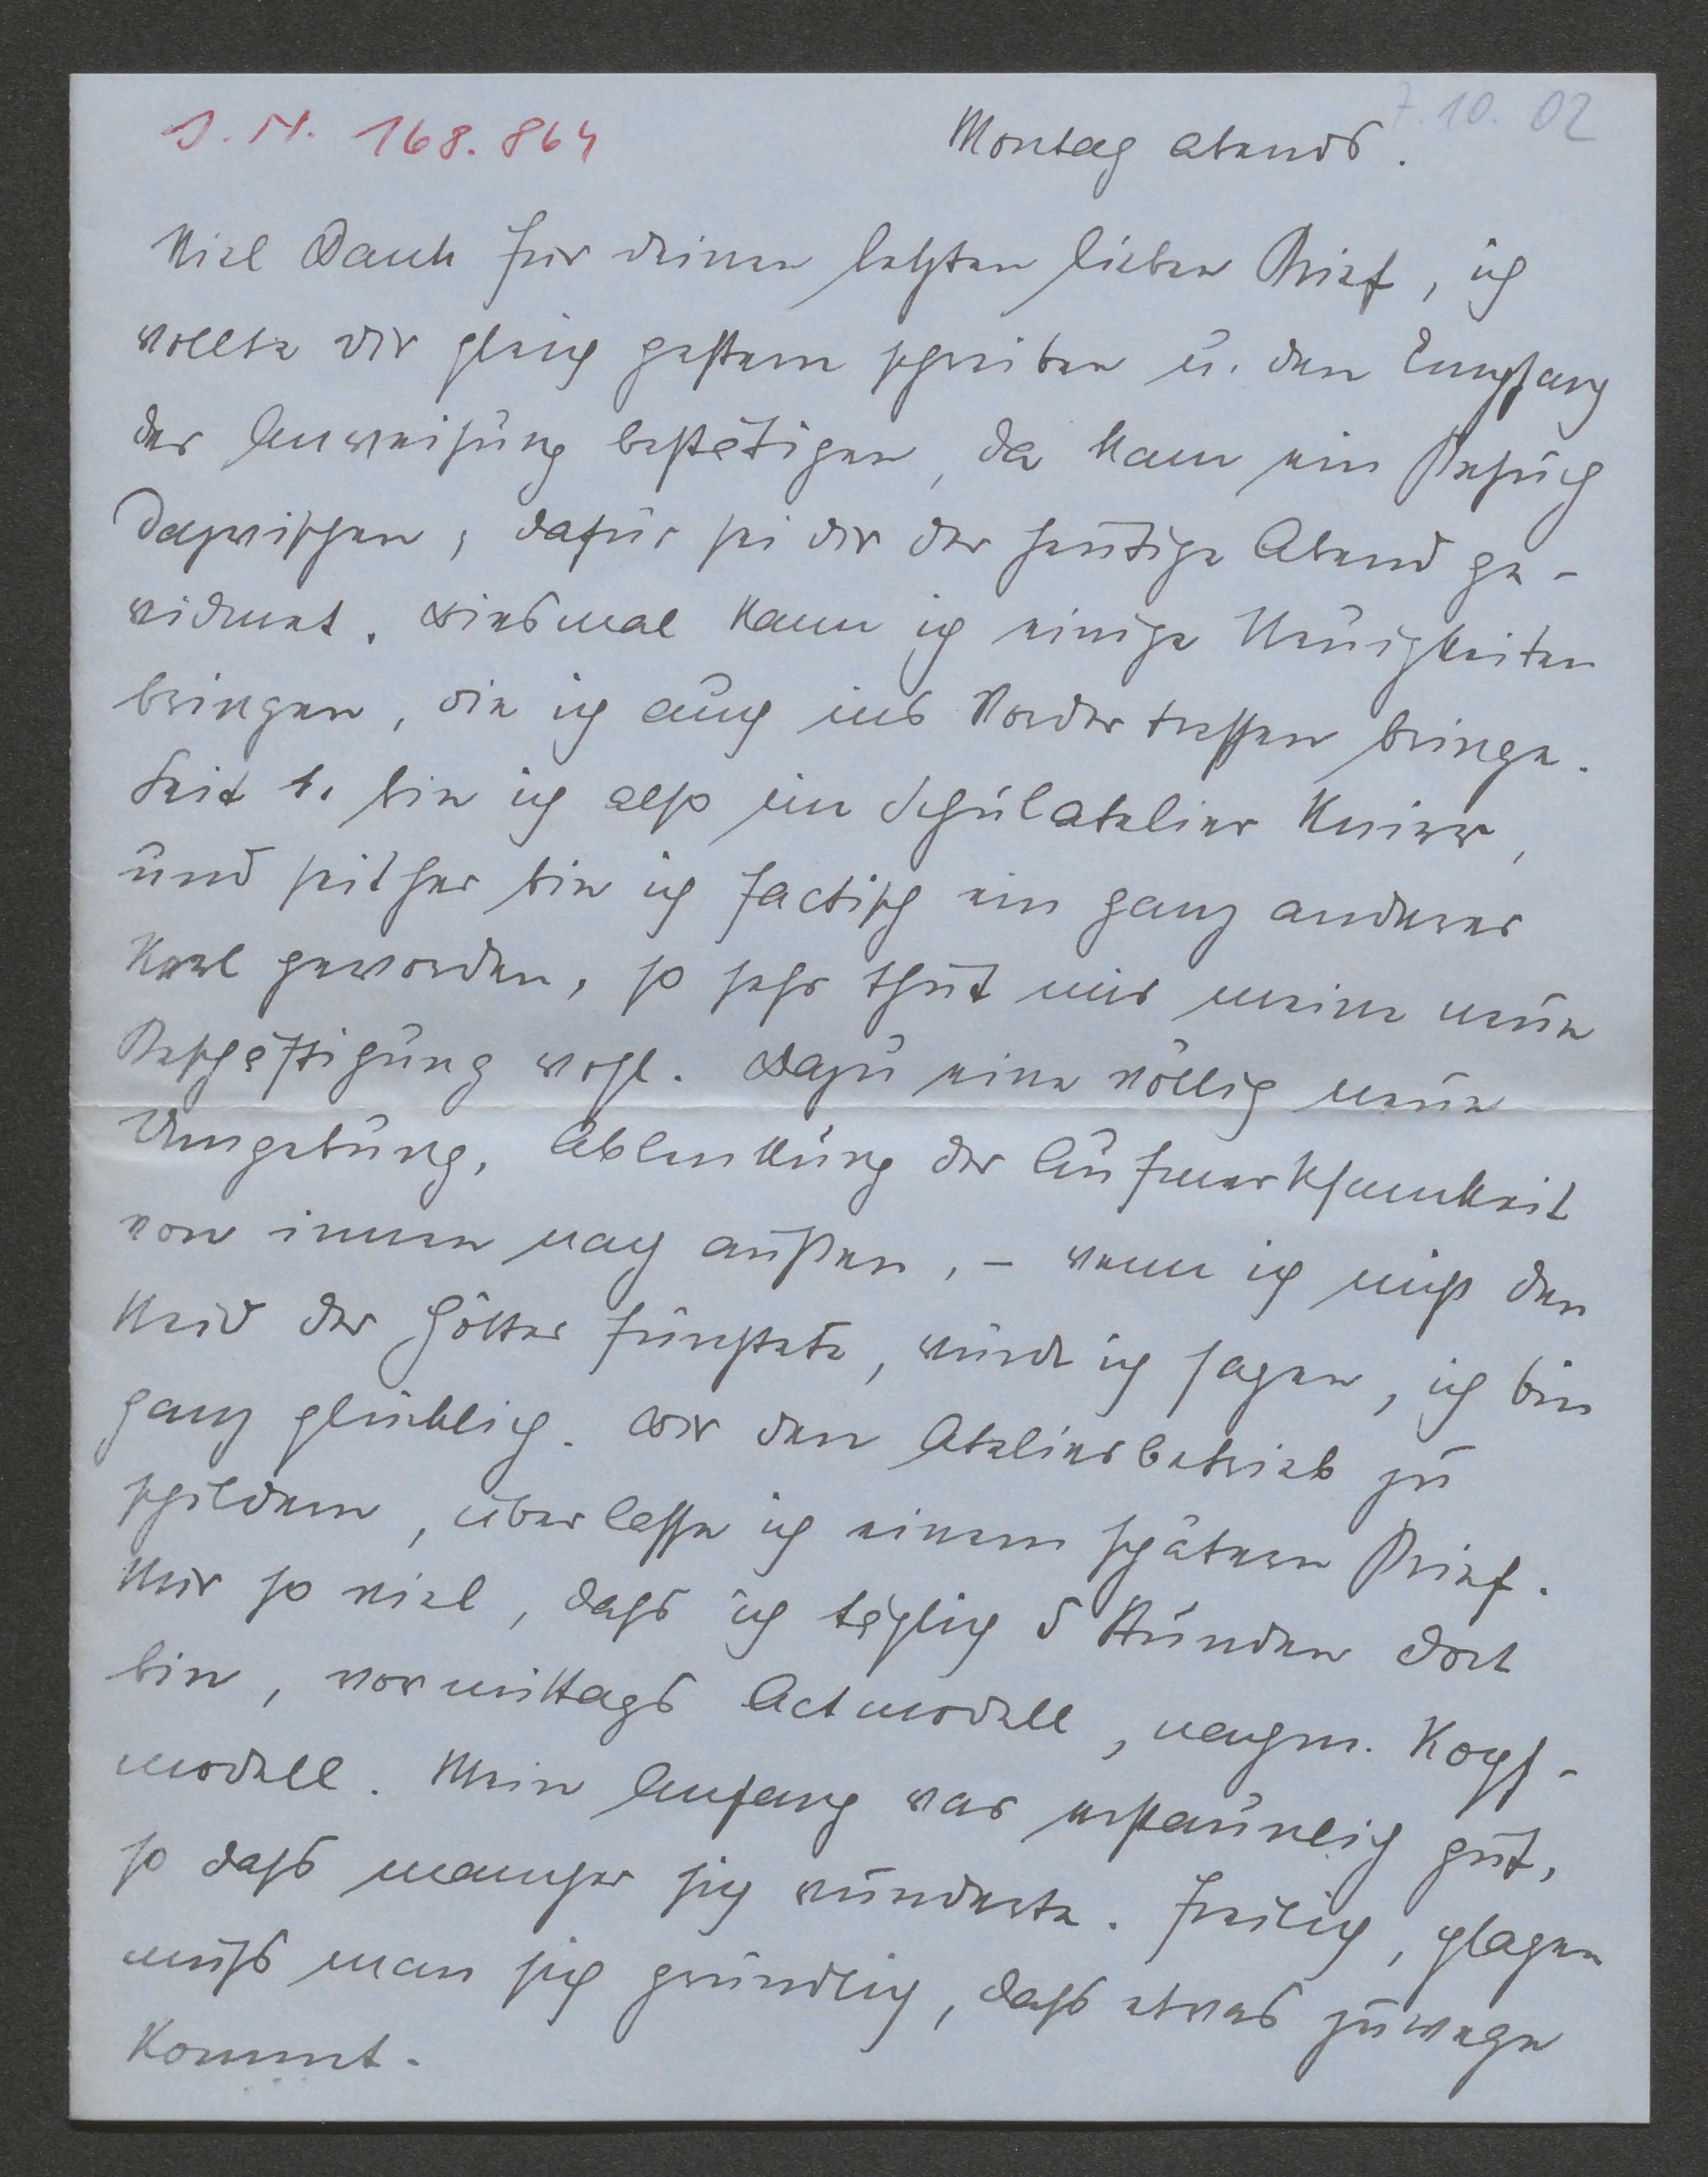 J. N. 168.864
7.10.02
Montag abends.
Viel Dank für deinen letzten lieben Brief, ich
wollte dir gleich gestern schreiben u. den Empfang
der Anweisung bestätigen, da kam ein Besuch
dazwischen; dafür sei dir der heutige Abend ge-
widmet. Diesmal kann ich einige Neuigkeiten
bringen, die ich auch ins Vordertreffen bringe.
Seit 1. bin ich also im Schulatelier Knirr,
und seither bin ich factisch ein ganz anderer
Kerl geworden, so sehr thut mir meine neue
Beschäftigung wohl. Dazu eine völlig neue
Umgebung, Ablenkung der Aufmerksamkeit
von innen nach außen, – wenn ich nicht den
Neid der Götter fürchtete, würde ich sagen, ich bin
ganz glücklich. Dir den Atelierbetrieb zu
schildern, überlasse ich einem spätern Brief.
Nur so viel, dass ich täglich 5 Stunden dort
bin, vormittags Actmodell, nachm. Kopf-
modell. Mein Anfang war erstaunlich gut,
so dass mancher sich wunderte. Freilich, plagen
muss man sich gründlich, dass etwas zuwege
kommt.